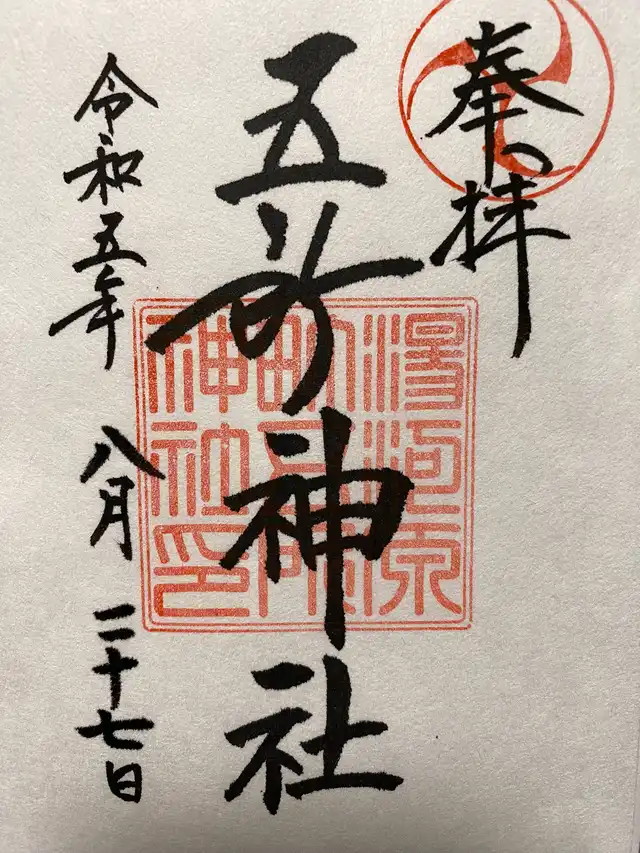 奉拝
湯河原
町五所
神社印
五所神社
令和五年 八月 二十七日